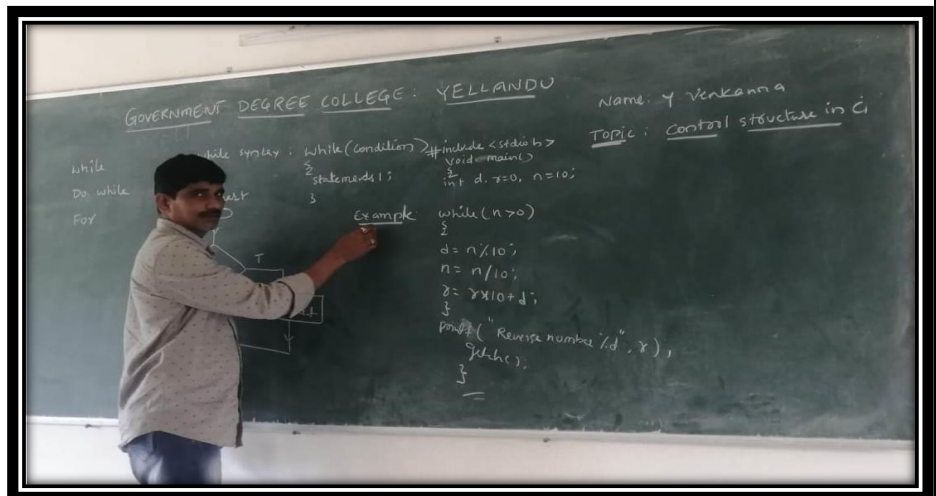 GOVERNMENT DEGREE COLLEGE: YELLANDU
Name: Y Venkanna
Topic: Control structure in C
while
Do. while
For
while syntex : while(condition)
{
statements1;
}
#include<stdio.h>
void main()
{
int d, r=0, n=10;
Example:
while(n>0)
{
d= n%10;
n= n/10;
r= r*10+d;
}
printf("Reverse number %d", r),
getch();
}
T